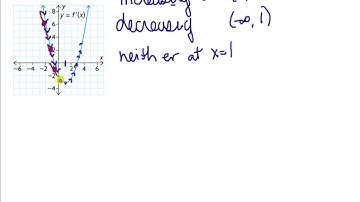 increasing
decreasing (-∞, 1)
neither at x=1
y = f'(x)
y
8
6
4
2
x
-6 -4 -2 0 2 4 6
-2
-4